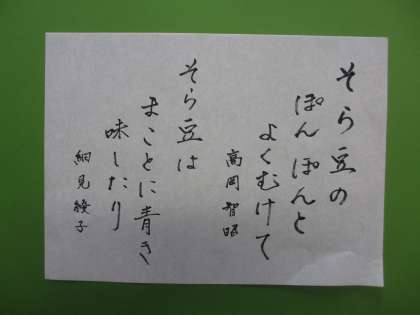 そら豆の
ぽんぽんと
よくむけて
高岡智昭
そら豆は
まことに青き
味したり
細見綾子